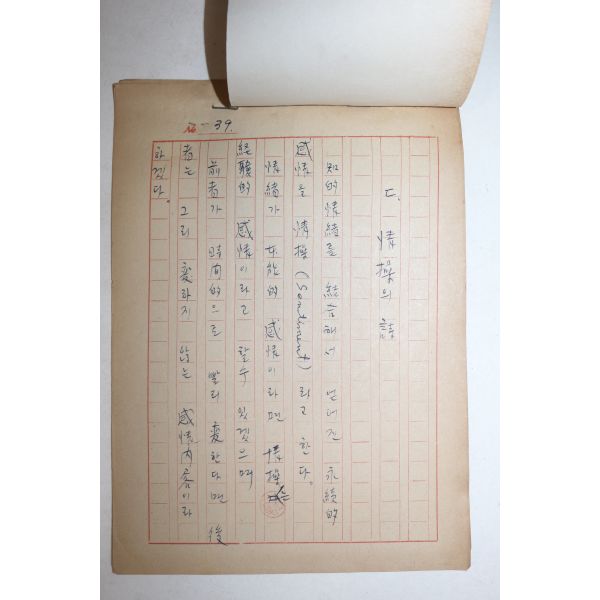 № 39.
ㄷ. 情操의 詩
知的 情緖를 結合해서 얻어진 永續的
感情을 情操(Sentiment)라고 한다.
情緖가 本能的 感情이라면 情操는
經驗的 感情이라고 할수 있겠으며
前者가 時間的으로 빨리 変한다면 後
者는 그리 変하지 않는 感情內容이라
하겠다.